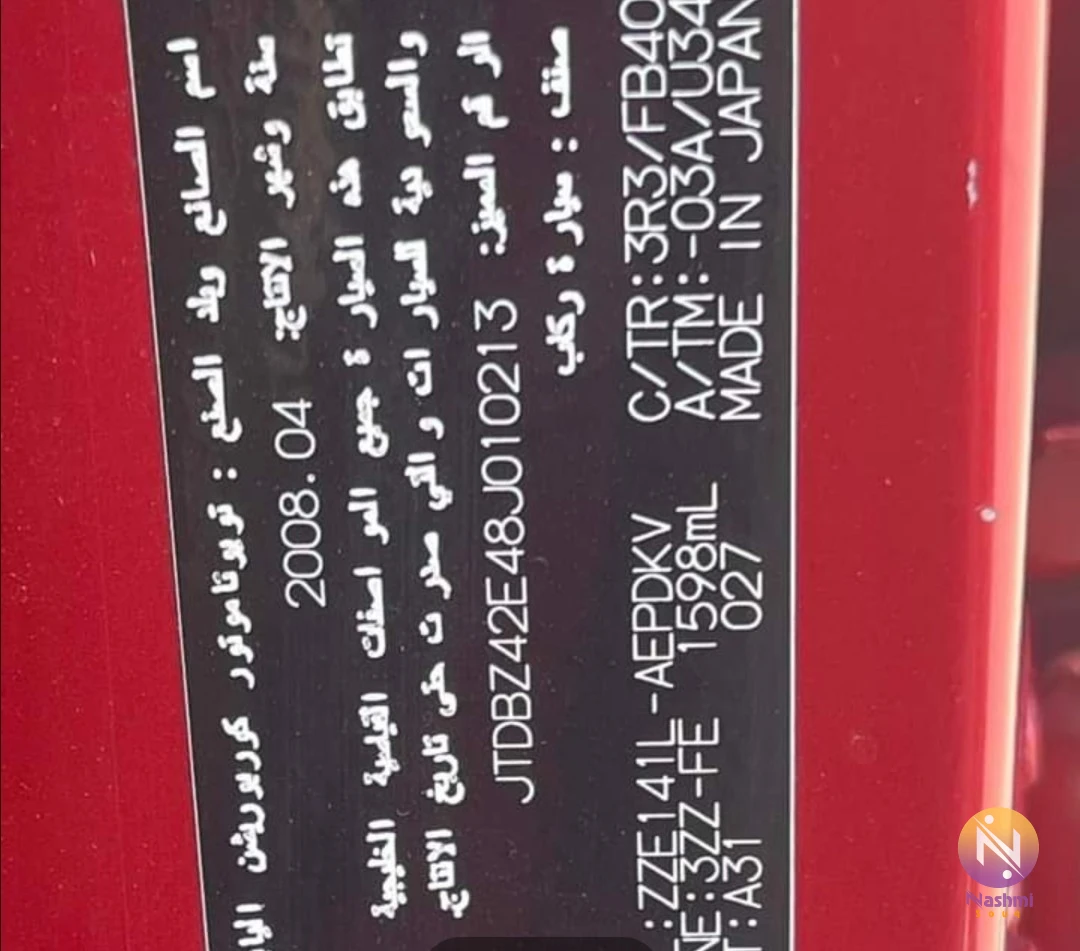 اسم الصانع وبلد الصنع : تويوتا موتور كوربوريشن اليا
سنة وشهر الانتاج: 2008.04
تطابق هذه السيارة جميع المواصفات القياسية الخليجية
والسعودية للسيارات والتي صدرت حتى تاريخ الانتاج.
الرقم المميز: JTDBZ42E48J010213
صنف : سيارة ركاب
:ZZE141L-AEPDKV C/TR:3R3/FB40
NE:3ZZ-FE 1598mL A/TM:-03A/U34
T:A31 027 MADE IN JAPAN
Nashmi
Souq